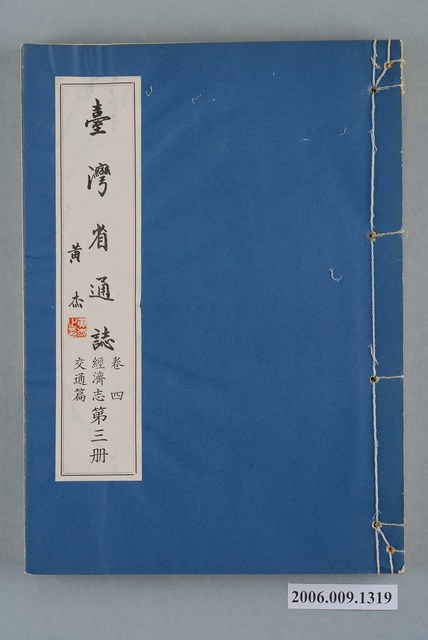 臺灣省通誌
黃杰
卷四
經濟志
交通篇
第三册
2006.009.1319